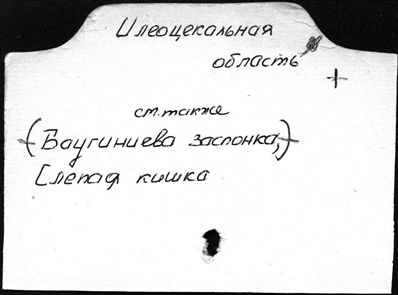 Илеоцекальная
область
+
см. также
(Баугиниева заслонка,)
Слепая кишка